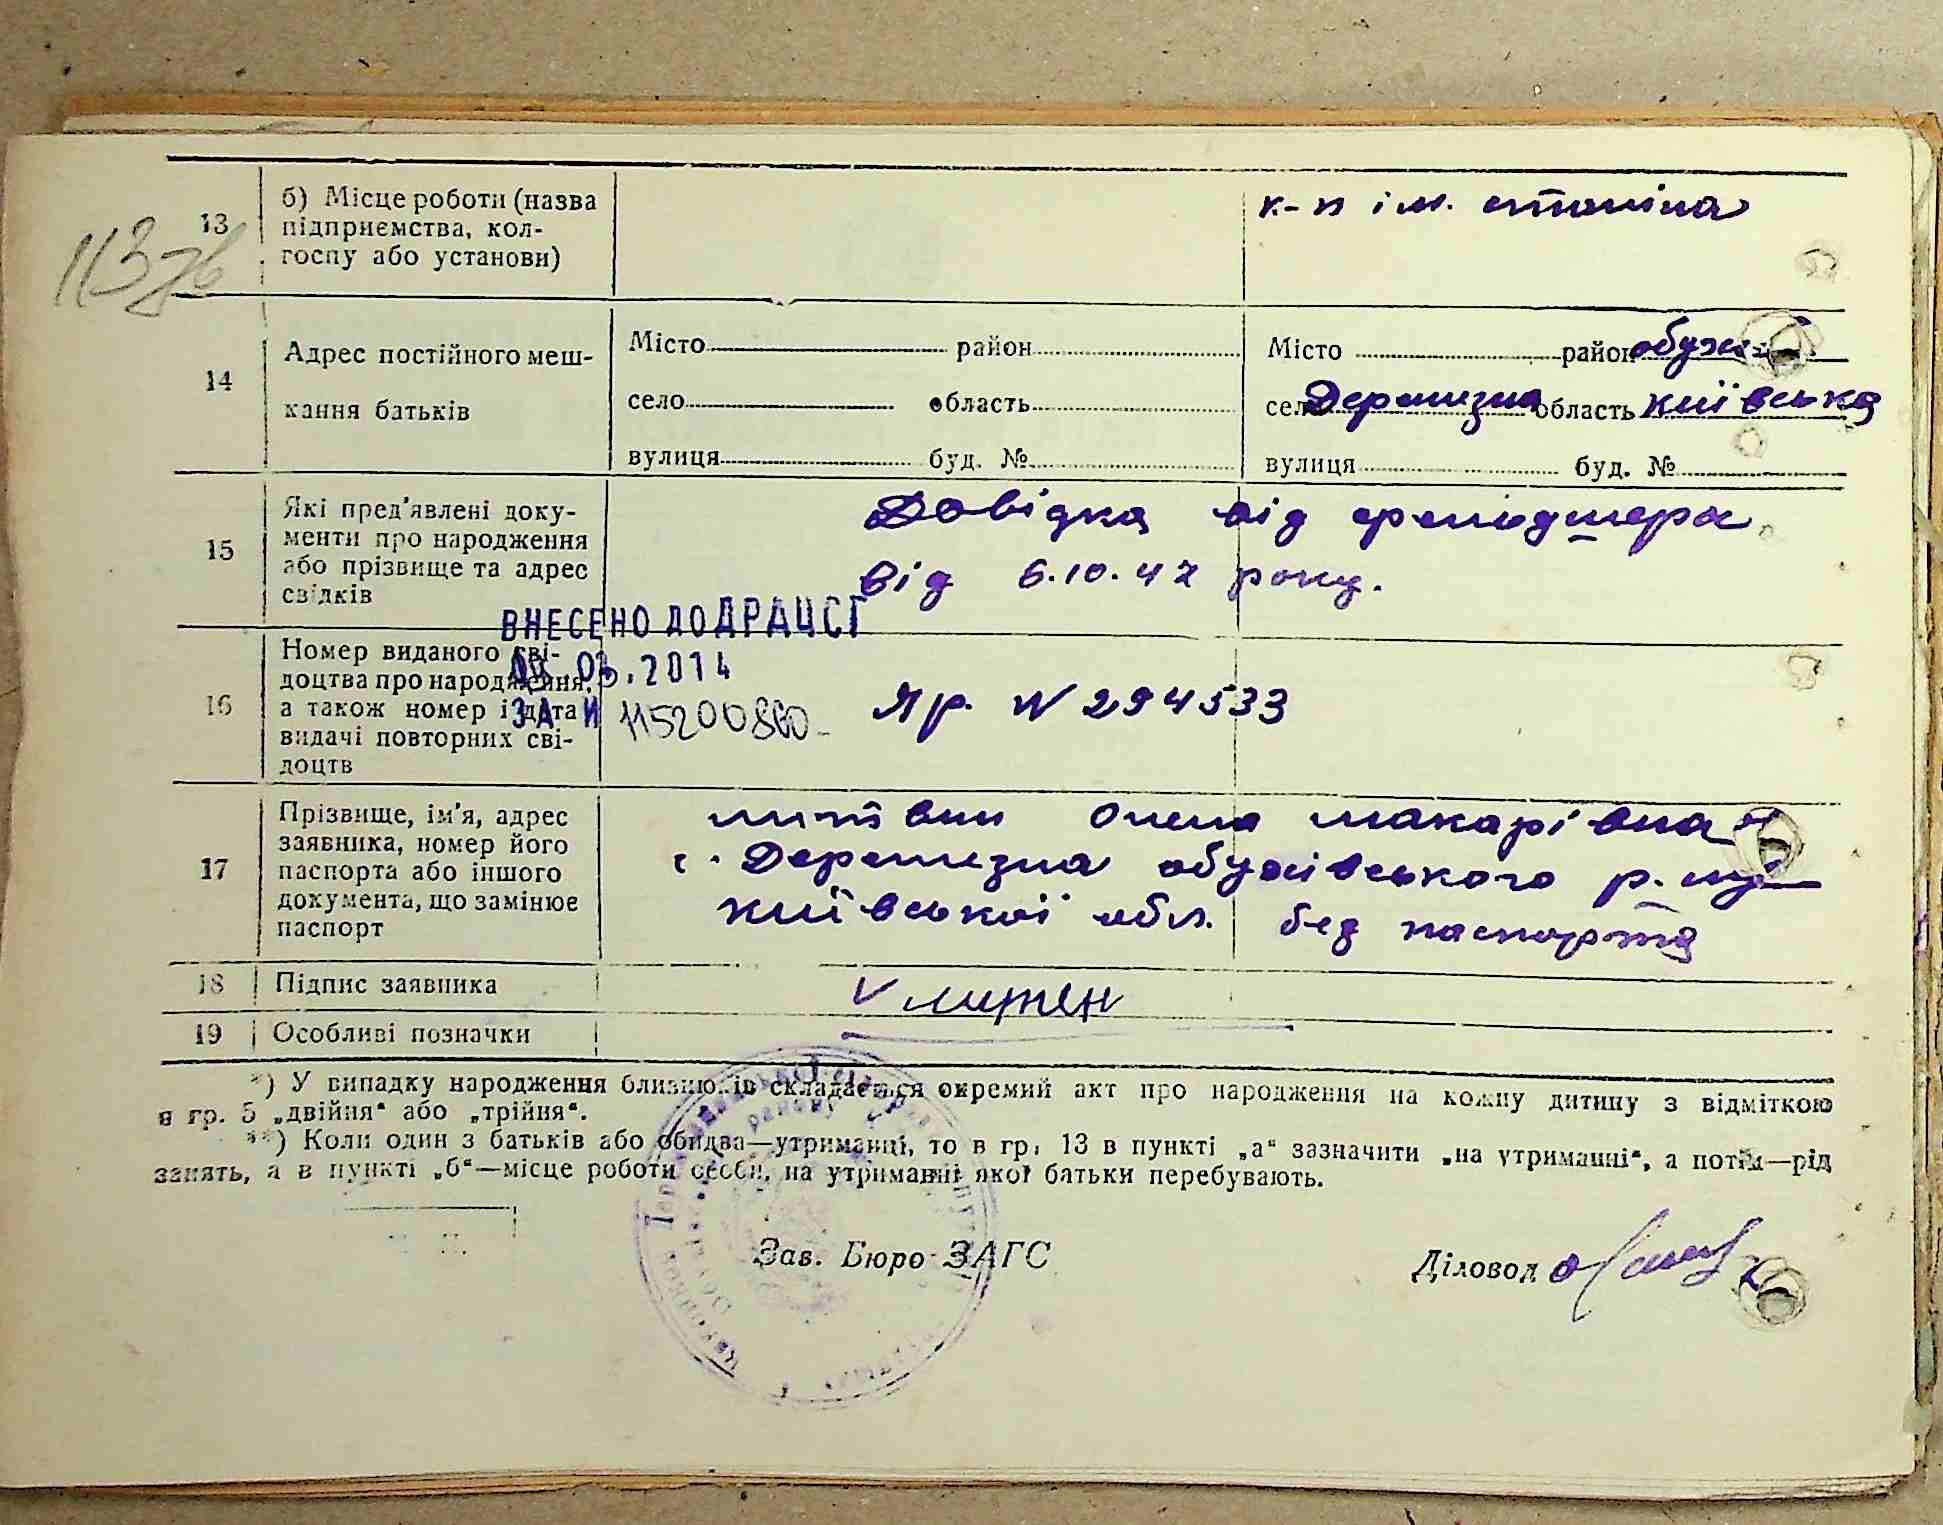 113зв
13 б) Місце роботи (назва
підприємства, кол-
госпу або установи)
к-п ім. сталіна
14 Адрес постійного меш-
кання батьків
Місто район
село область
вулиця буд. №
Місто район обухі
село Деремезна область київська
вулиця буд. №
15 Які пред'явлені доку-
менти про народження
або прізвище та адрес
свідків
Довідка від фельдшера
від 6.10.47 року.
ВНЕСЕНО ДО ДРАЦСГ
2014
ЗА №115200860
16 Номер виданого сві-
доцтва про народження,
а також номер і дата
видачі повторних сві-
доцтв
Яр. N 294533
17 Прізвище, ім'я, адрес
заявника, номер його
паспорта або іншого
документа, що замінює
паспорт
литвин Олена макарівна
с. Деремезна обухівського р.
київської обл. без паспорта
18 Підпис заявника
19 Особливі позначки
*) У випадку народження близнюків складається окремий акт про народження на кожну дитину з відміткою
в гр. 5 „двійня“ або „трійня“.
**) Коли один з батьків або обидва—утриманці, то в гр. 13 в пункті „а“ зазначити „на утриманні“, а потім—рід
занять, а в пункті „б“—місце роботи особи, на утриманні якої батьки перебувають.
М. П.
Зав. Бюро ЗАГС
Діловод